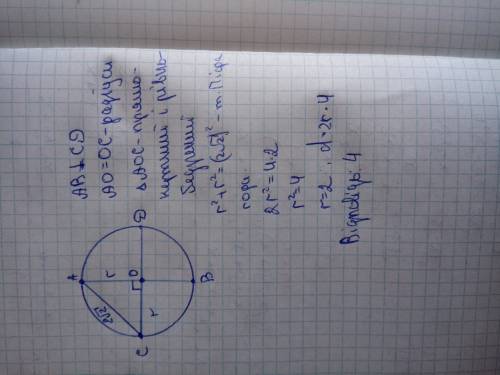 A
r
2√2
O
C
r
D
B
AB⊥CD
AO=OC-радіуси
△AOC-прямо-
кутний і рівно-
бедрений
r²+r²=(2√2)² - т. Піфа
гора
2r²=4·2
r²=4
r=2, d=2r=4
Відповідь: 4